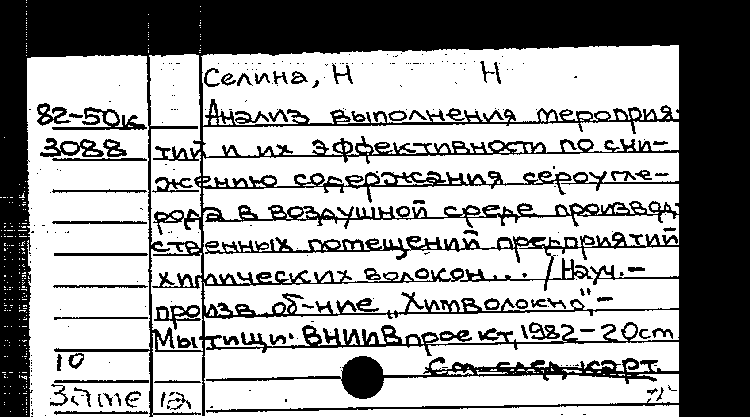 Селина, Н Н
82-50к Анализ выполнения мероприя-
3088 тий и их эффективности по сни-
жению содержания сероугле-
рода в воздушной среде производ-
ственных помещений предприятий
химических волокон... / Науч.-
произв. об-ние „Химволокно",-
Мытищи: ВНИИВпроект, 1982-20 ст
10 См. след. карт.